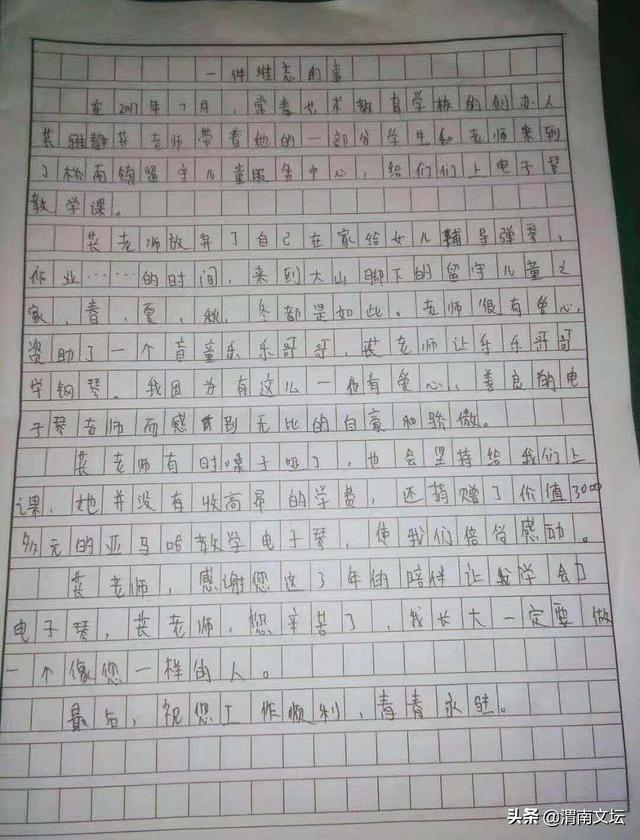 一件难忘的事
在2017年7月，常青艺术教育学校的创办人
裴雅静裴老师带着他的一部分学生和老师来到
了桥南镇留守儿童服务中心，给们们上电子琴
教学课。
裴老师放弃了自己在家给女儿辅导弹琴，
作业……的时间，来到大山脚下的留守儿童之
家，春，夏，秋，冬都是如此。老师很有爱心，
资助了一个盲童乐乐哥哥，裴老师让乐乐哥哥
学钢琴。我因为有这么一位有爱心、善良的电
子琴老师而感到无比的自豪和骄傲。
裴老师有时嗓子哑了，也会坚持给我们上
课，她并没有收高昂的学费，还捐赠了价值3000
多元的亚马哈教学电子琴，使我们倍受感动。
裴老师，感谢您这了年的陪伴让我学会
电子琴，裴老师，您辛苦了，我长大一定要做
一个像您一样的人。
最后，祝您工作顺利，青青永驻。
头条@渭南文坛